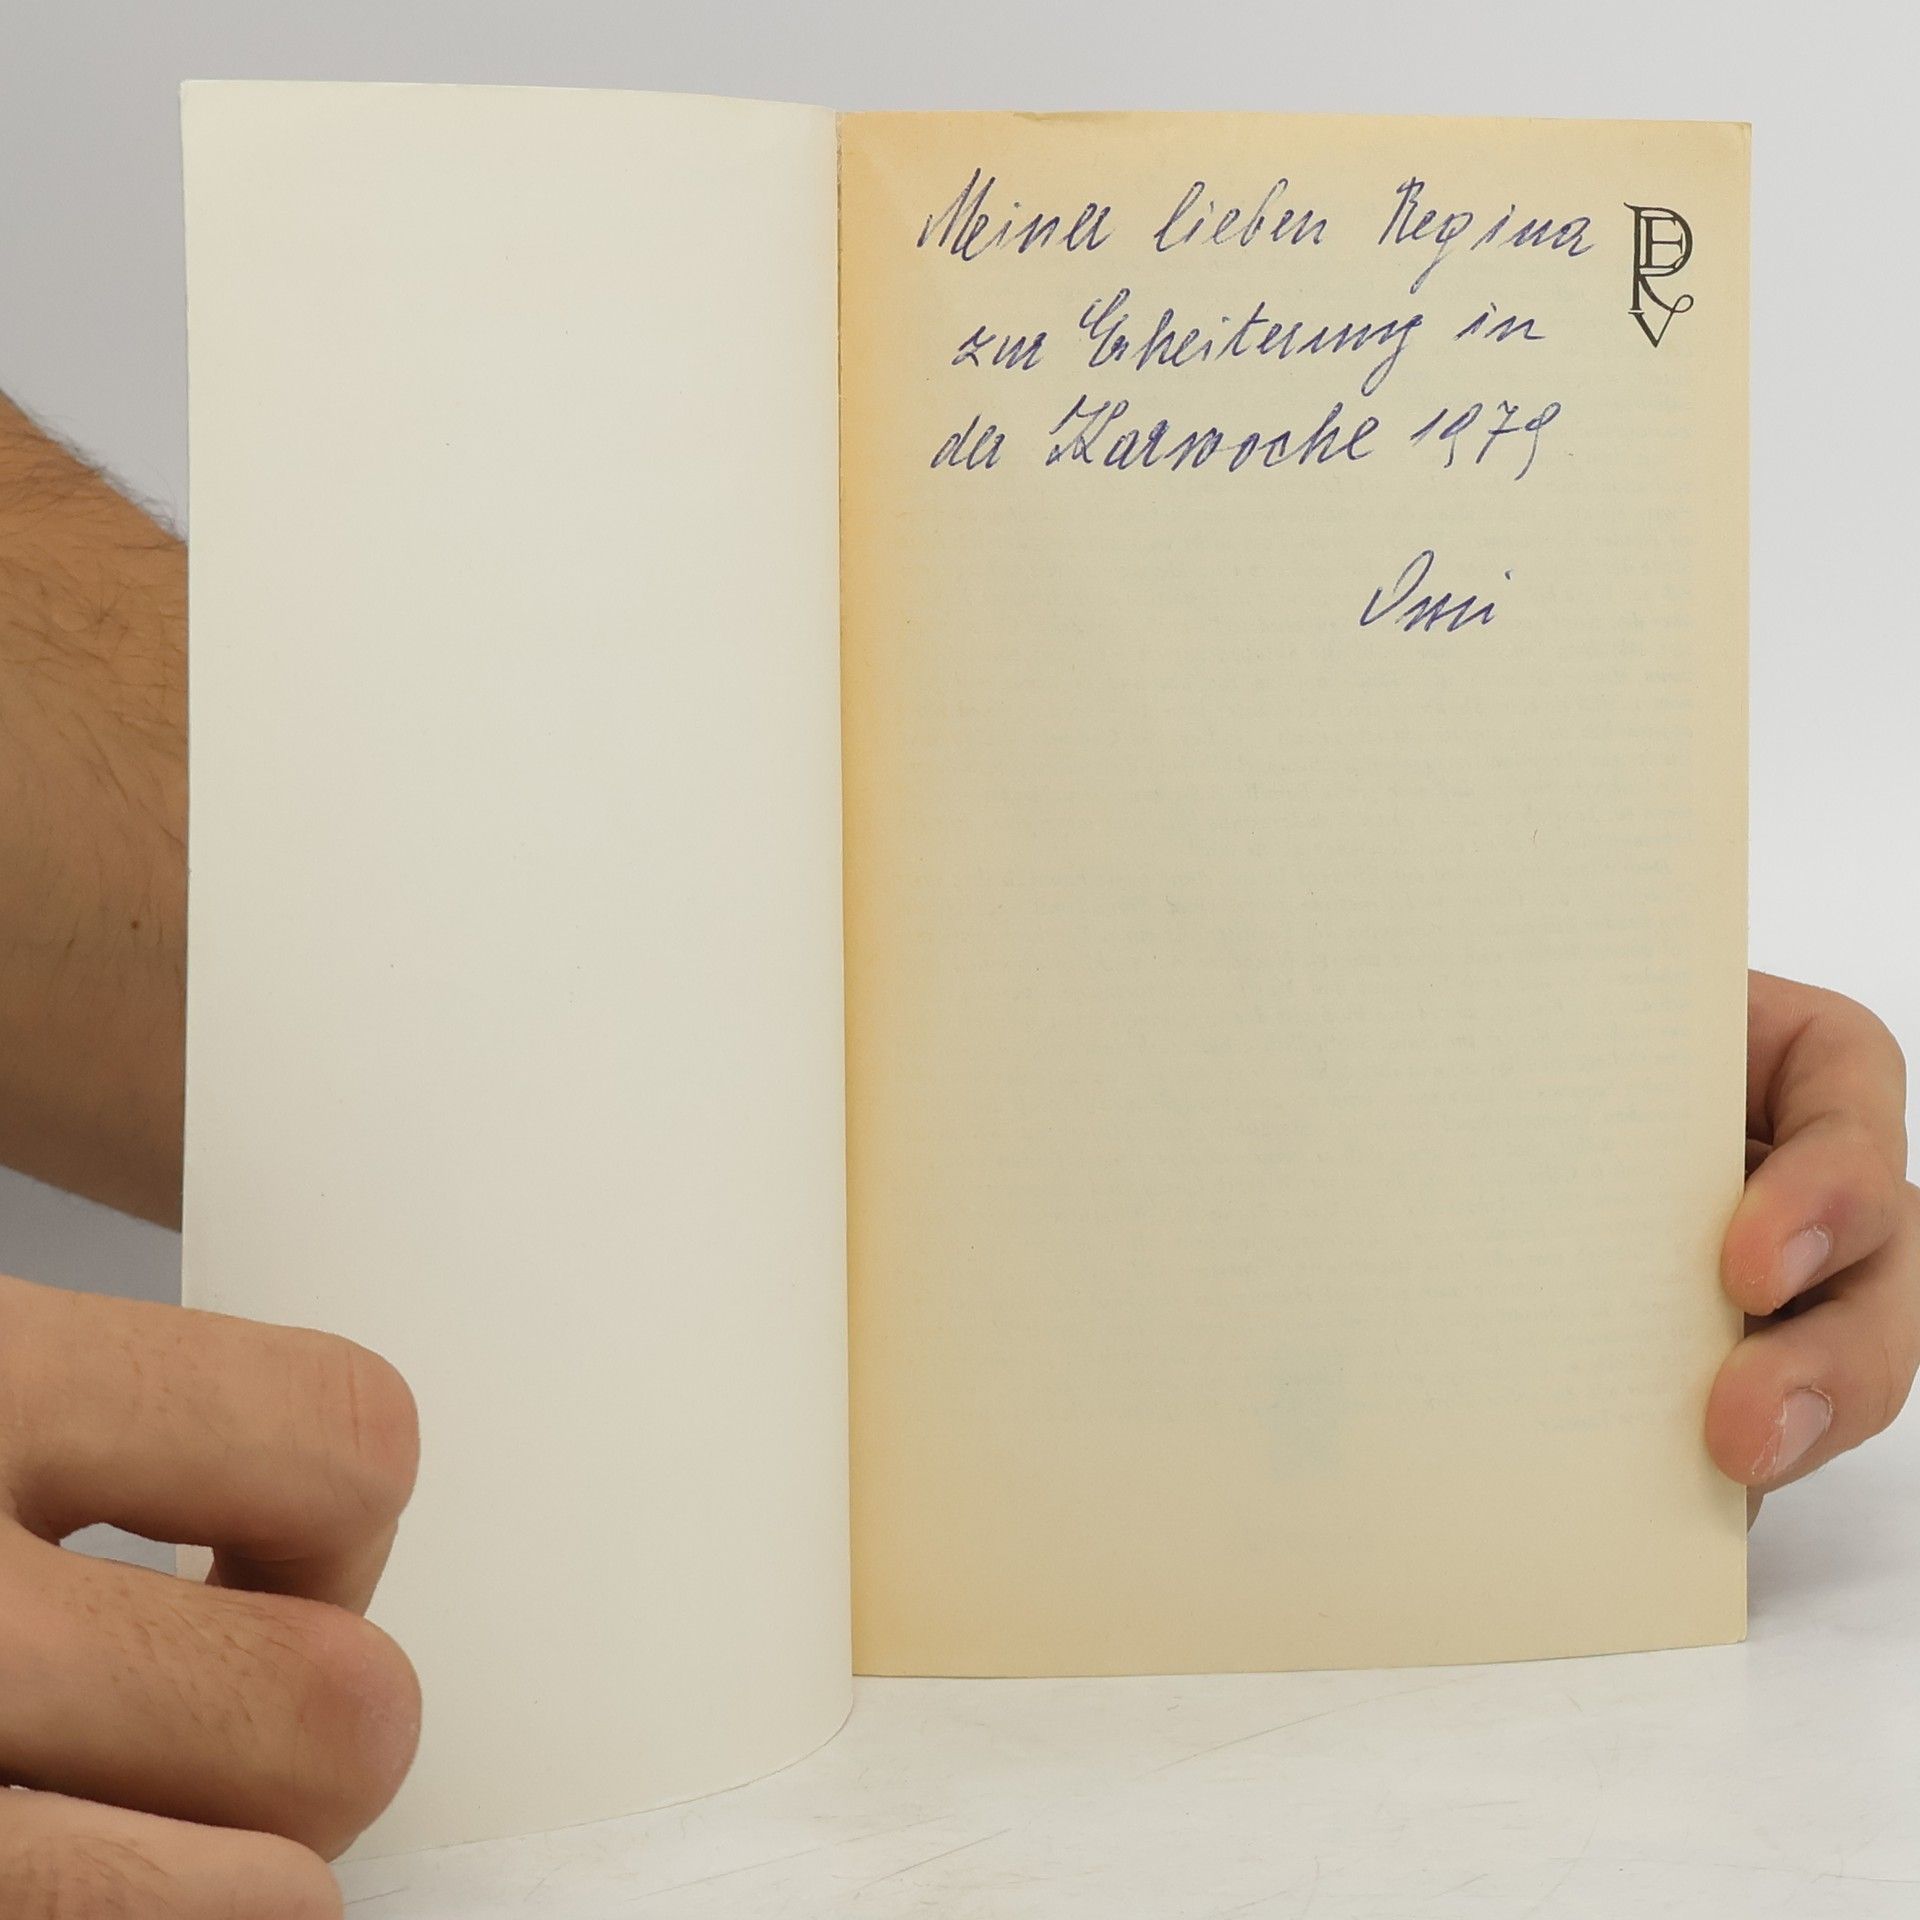 Meiner lieben Regina
zur Erheiterung in
der Karwoche 1979
Omi